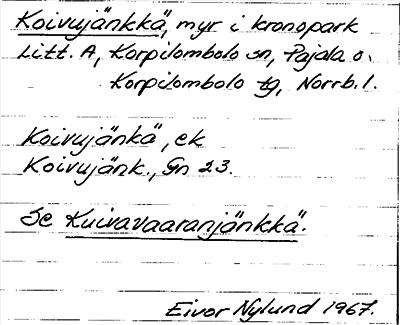 Koivujänkkä, myr i kronopark
Litt. A, Korpilombolo sn, Pajala o.
Korpilombolo tg, Norrb. l.
Koivujänkä, ek
Koivujänk., Gn 23.
Se Kuivavaaranjänkkä.
Eivor Nylund 1967.